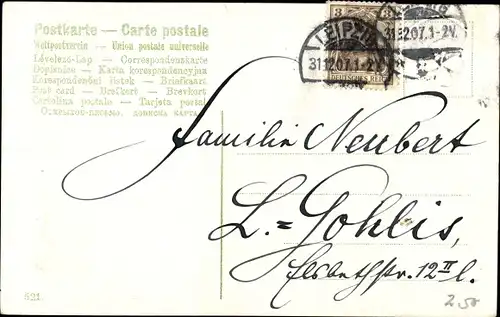 Postkarte — Carte postale
Weltpostverein — Union postale universelle
Levelező-Lap — Correspondenzkarte
Dopisnice — Karta korespondencyjna
Korespondenčni listek — Briefkaart
Post card — Brefkort — Brevkort
Cartolina postale — Tarjeta postal
3 3
DEUTSCHES REICH
LEIPZIG
31.12.07.1-2V.
31.12.07.1-2V.
Familie Neubert
L.=Gohlis,
Elsbethstr. 12 II l.
621
2.50